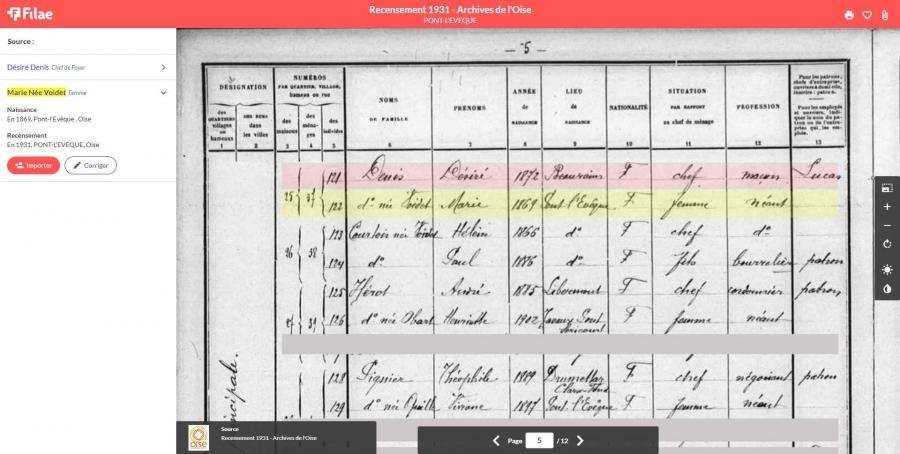 Filae
Recensement 1931 - Archives de l'Oise
PONT-L'EVEQUE
Source :
Désiré Denis Chef de Foyer
Marie Née Voidet Femme
Naissance
En 1869, Pont-l'Evêque, Oise
Recensement
En 1931, PONT-L'EVEQUE, Oise
Importer
Corriger
— 5 —
DÉSIGNATION
NUMÉROS
PAR QUARTIER, VILLAGE, hameau ou rue
NOMS
DE FAMILLE
PRÉNOMS
ANNÉE
de
NAISSANCE
LIEU
de
NAISSANCE
NATIONALITÉ
SITUATION
PAR RAPPORT
au chef de ménage
PROFESSION
des QUARTIERS villages ou hameaux
DES RUES dans les villes
des maisons
des ménages
des individus
1 2 3 4 5 6 7 8 9 10 11 12 13
25 37 121 Denis Désiré 1872 F chef maçon Lucas
122 d° née Voidet Marie 1869 Pont l'Evêque F femme néant
26 38 123 Courtois née Voidet Hélène 1866 d° F chef d°
124 d° Paul 1886 d° F fils bourrelier patron
125 Hérot André 1885 F chef cordonnier patron
27 39 126 d° née Henriette 1902 F femme néant
128 Théophile 1889 F chef négociant patron
129 d° née 1897 Pont l'Evêque F femme néant
cipale.
oise
Source
Recensement 1931 - Archives de l'Oise
Page 5 / 12